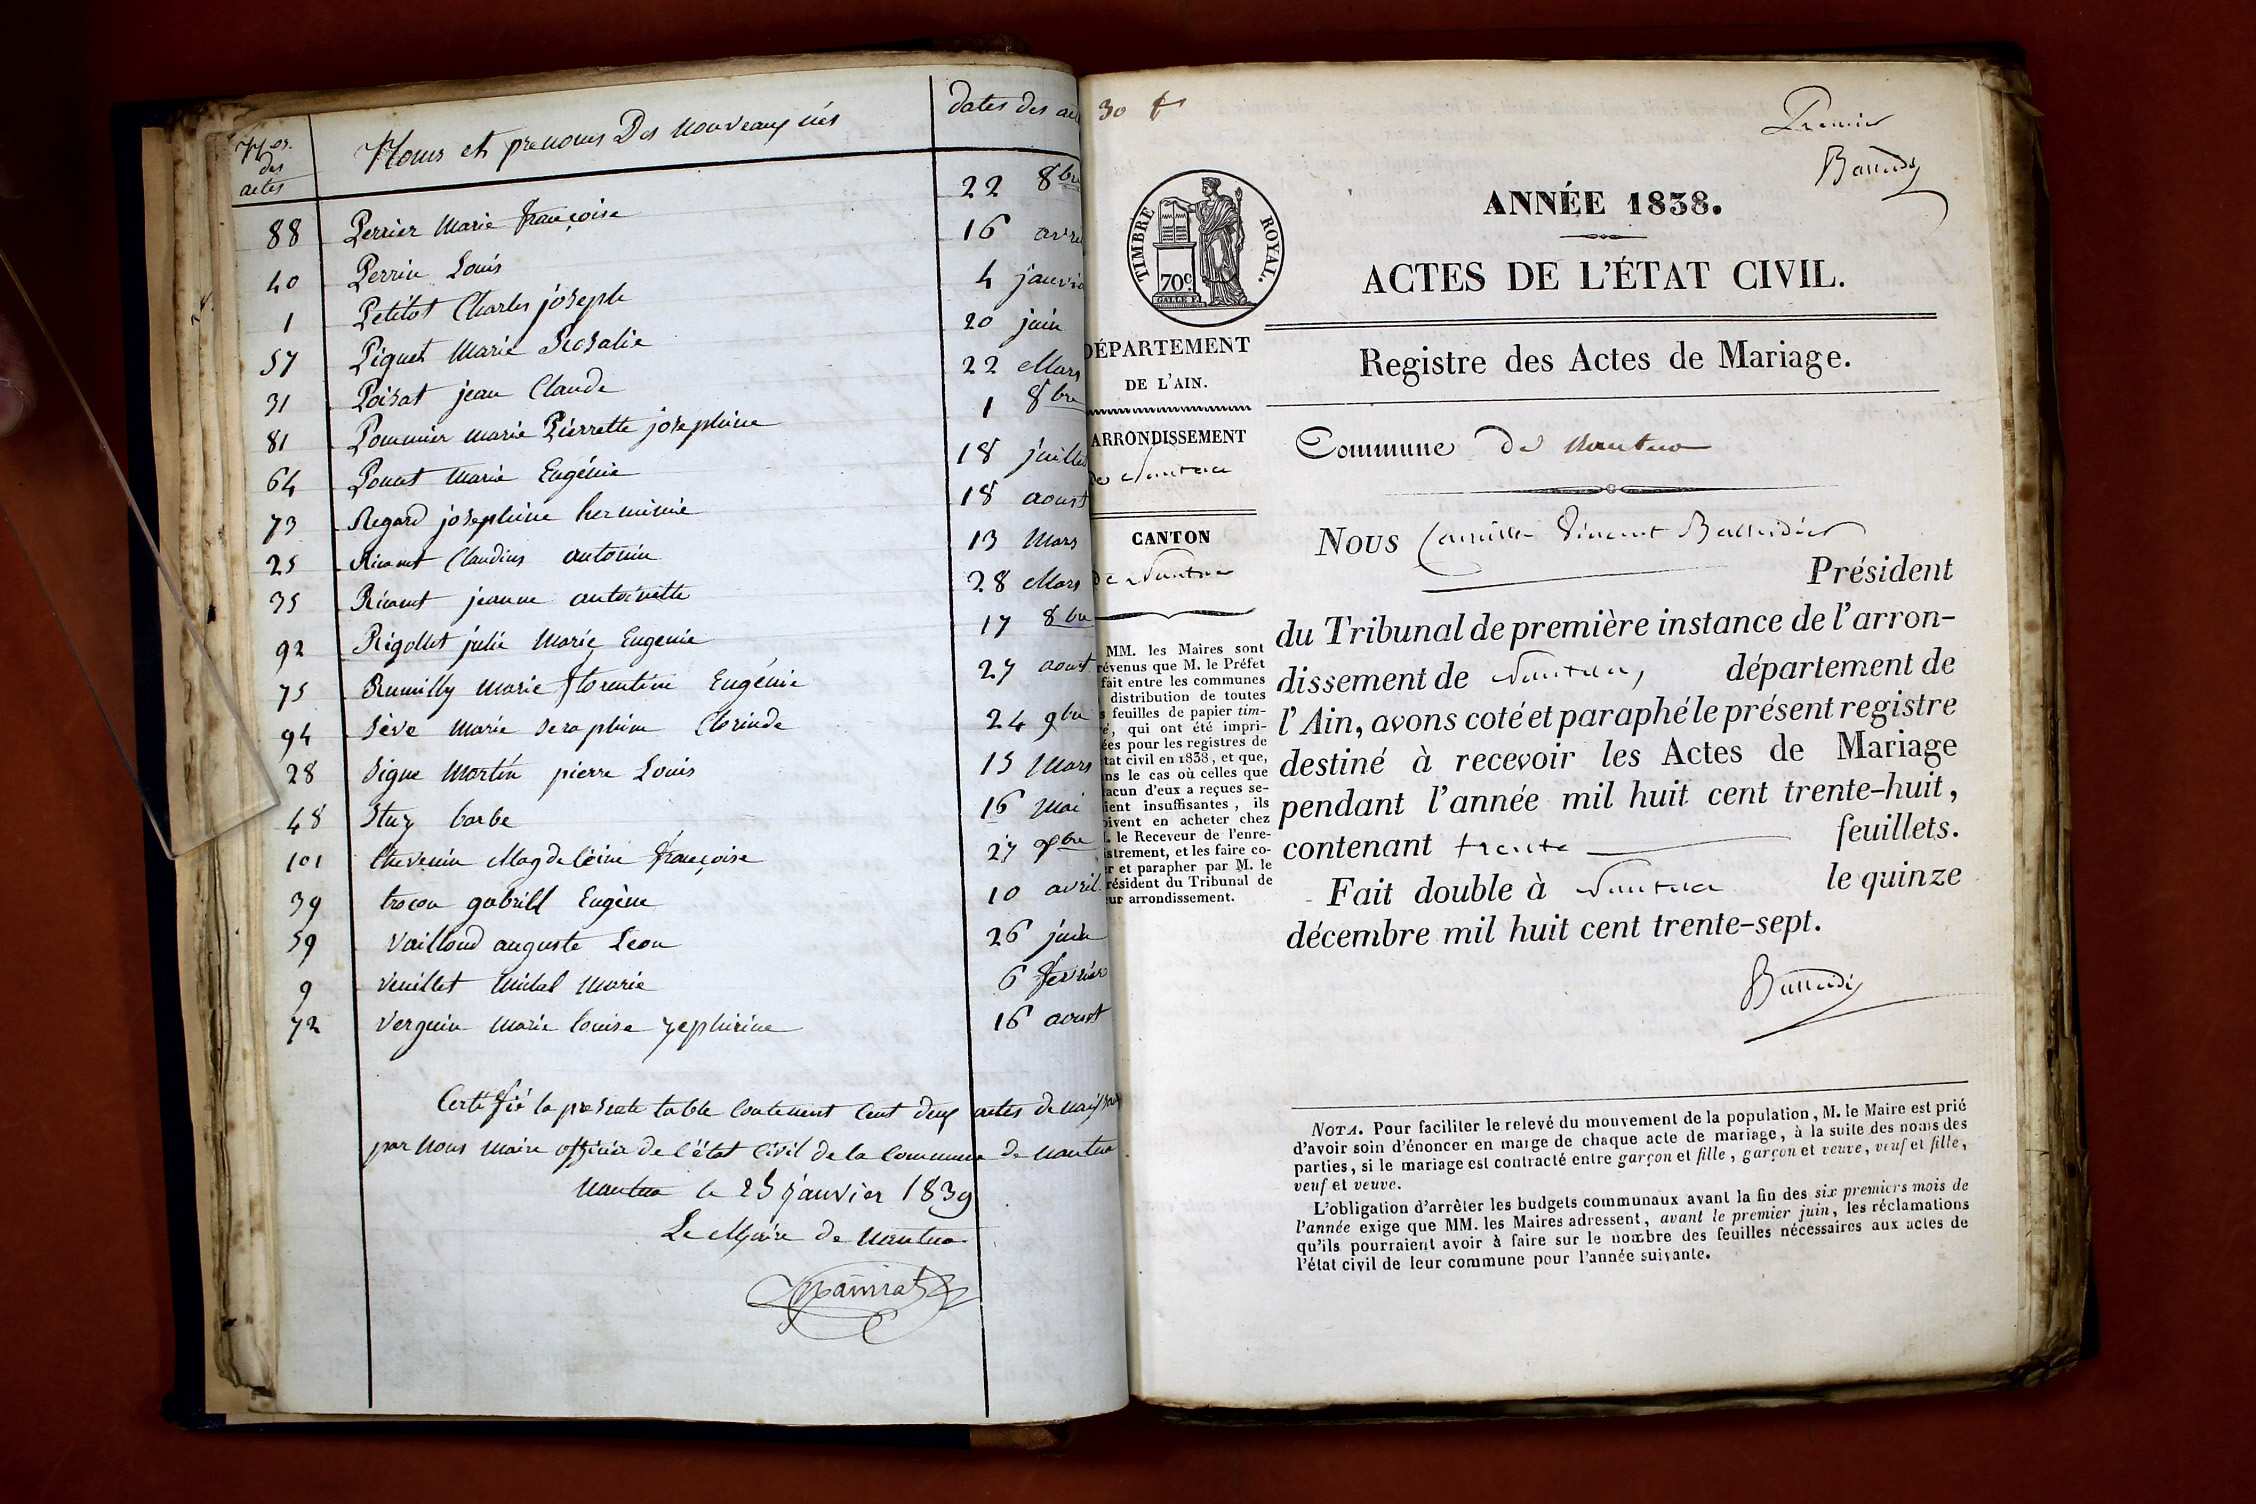 Nos. des actes
Noms et prenoms Des nouveaux nés
dates des
88 Perrier Marie françoise 22 8bre
40 Perrin Louis 16 avril
1 Petitot Charles joseph 4 janvier
57 Piquet Marie Rosalie 20 juin
31 Poisat jean Claude 22 Mars
81 Pommier marie Pierrette josephine 1 8bre
64 Ponat Marie Eugénie 18 juillet
73 Regard josephine herminie 18 aoust
25 Claudius antonin 13 Mars
35 jeanne antoinette 28 Mars
92 Rigollet julie Marie Eugenie 17 8bre
75 Rumilly Marie florentine Eugénie 27 aoust
94 Sève Marie Seraphine Clorinde 24 9bre
28 Signe Martin pierre Louis 15 Mars
48 Stuz barbe 16 Mai
101 thevenin Magdeleine françoise 27 Xbre
39 trocon gabriel Eugène 10 avril
59 Vailloud auguste Leon 26 juin
9 Veuillet Michel Marie 6 février
72 Verguin Marie Louise zephirine 16 aoust
Certifié la présente table contenent Cent deux actes de naissance
par Nous Maire officier de l'état Civil de la Commune de nantua
Nantua le 25 janvier 1839
Le Maire de Nantua
30 f
Premier
TIMBRE ROYAL.
70c
GALLE
DÉPARTEMENT
DE L'AIN.
ARRONDISSEMENT
de Nantua
CANTON
de Nantua
MM. les Maires sont
révenus que M. le Préfet
fait entre les communes
distribution de toutes
s feuilles de papier tim-
é, qui ont été impri-
ées pour les registres de
tat civil en 1838, et que,
ns le cas où celles que
acun d'eux a reçues se-
ient insuffisantes, ils
oivent en acheter chez
. le Receveur de l'enre-
istrement, et les faire co-
er et parapher par M. le
résident du Tribunal de
eur arrondissement.
ANNÉE 1838.
ACTES DE L'ÉTAT CIVIL.
Registre des Actes de Mariage.
Commune de Nantua
Nous Camille Vincent
Président
du Tribunal de première instance de l'arron-
dissement de Nantua, département de
l'Ain, avons coté et paraphé le présent registre
destiné à recevoir les Actes de Mariage
pendant l'année mil huit cent trente-huit,
contenant trente feuillets.
Fait double à Nantua le quinze
décembre mil huit cent trente-sept.
NOTA. Pour faciliter le relevé du mouvement de la population, M. le Maire est prié
d'avoir soin d'énoncer en marge de chaque acte de mariage, à la suite des noms des
parties, si le mariage est contracté entre garçon et fille, garçon et veuve, veuf et fille,
veuf et veuve.
L'obligation d'arrêter les budgets communaux avant la fin des six premiers mois de
l'année exige que MM. les Maires adressent, avant le premier juin, les réclamations
qu'ils pourraient avoir à faire sur le nombre des feuilles nécessaires aux actes de
l'état civil de leur commune pour l'année suivante.